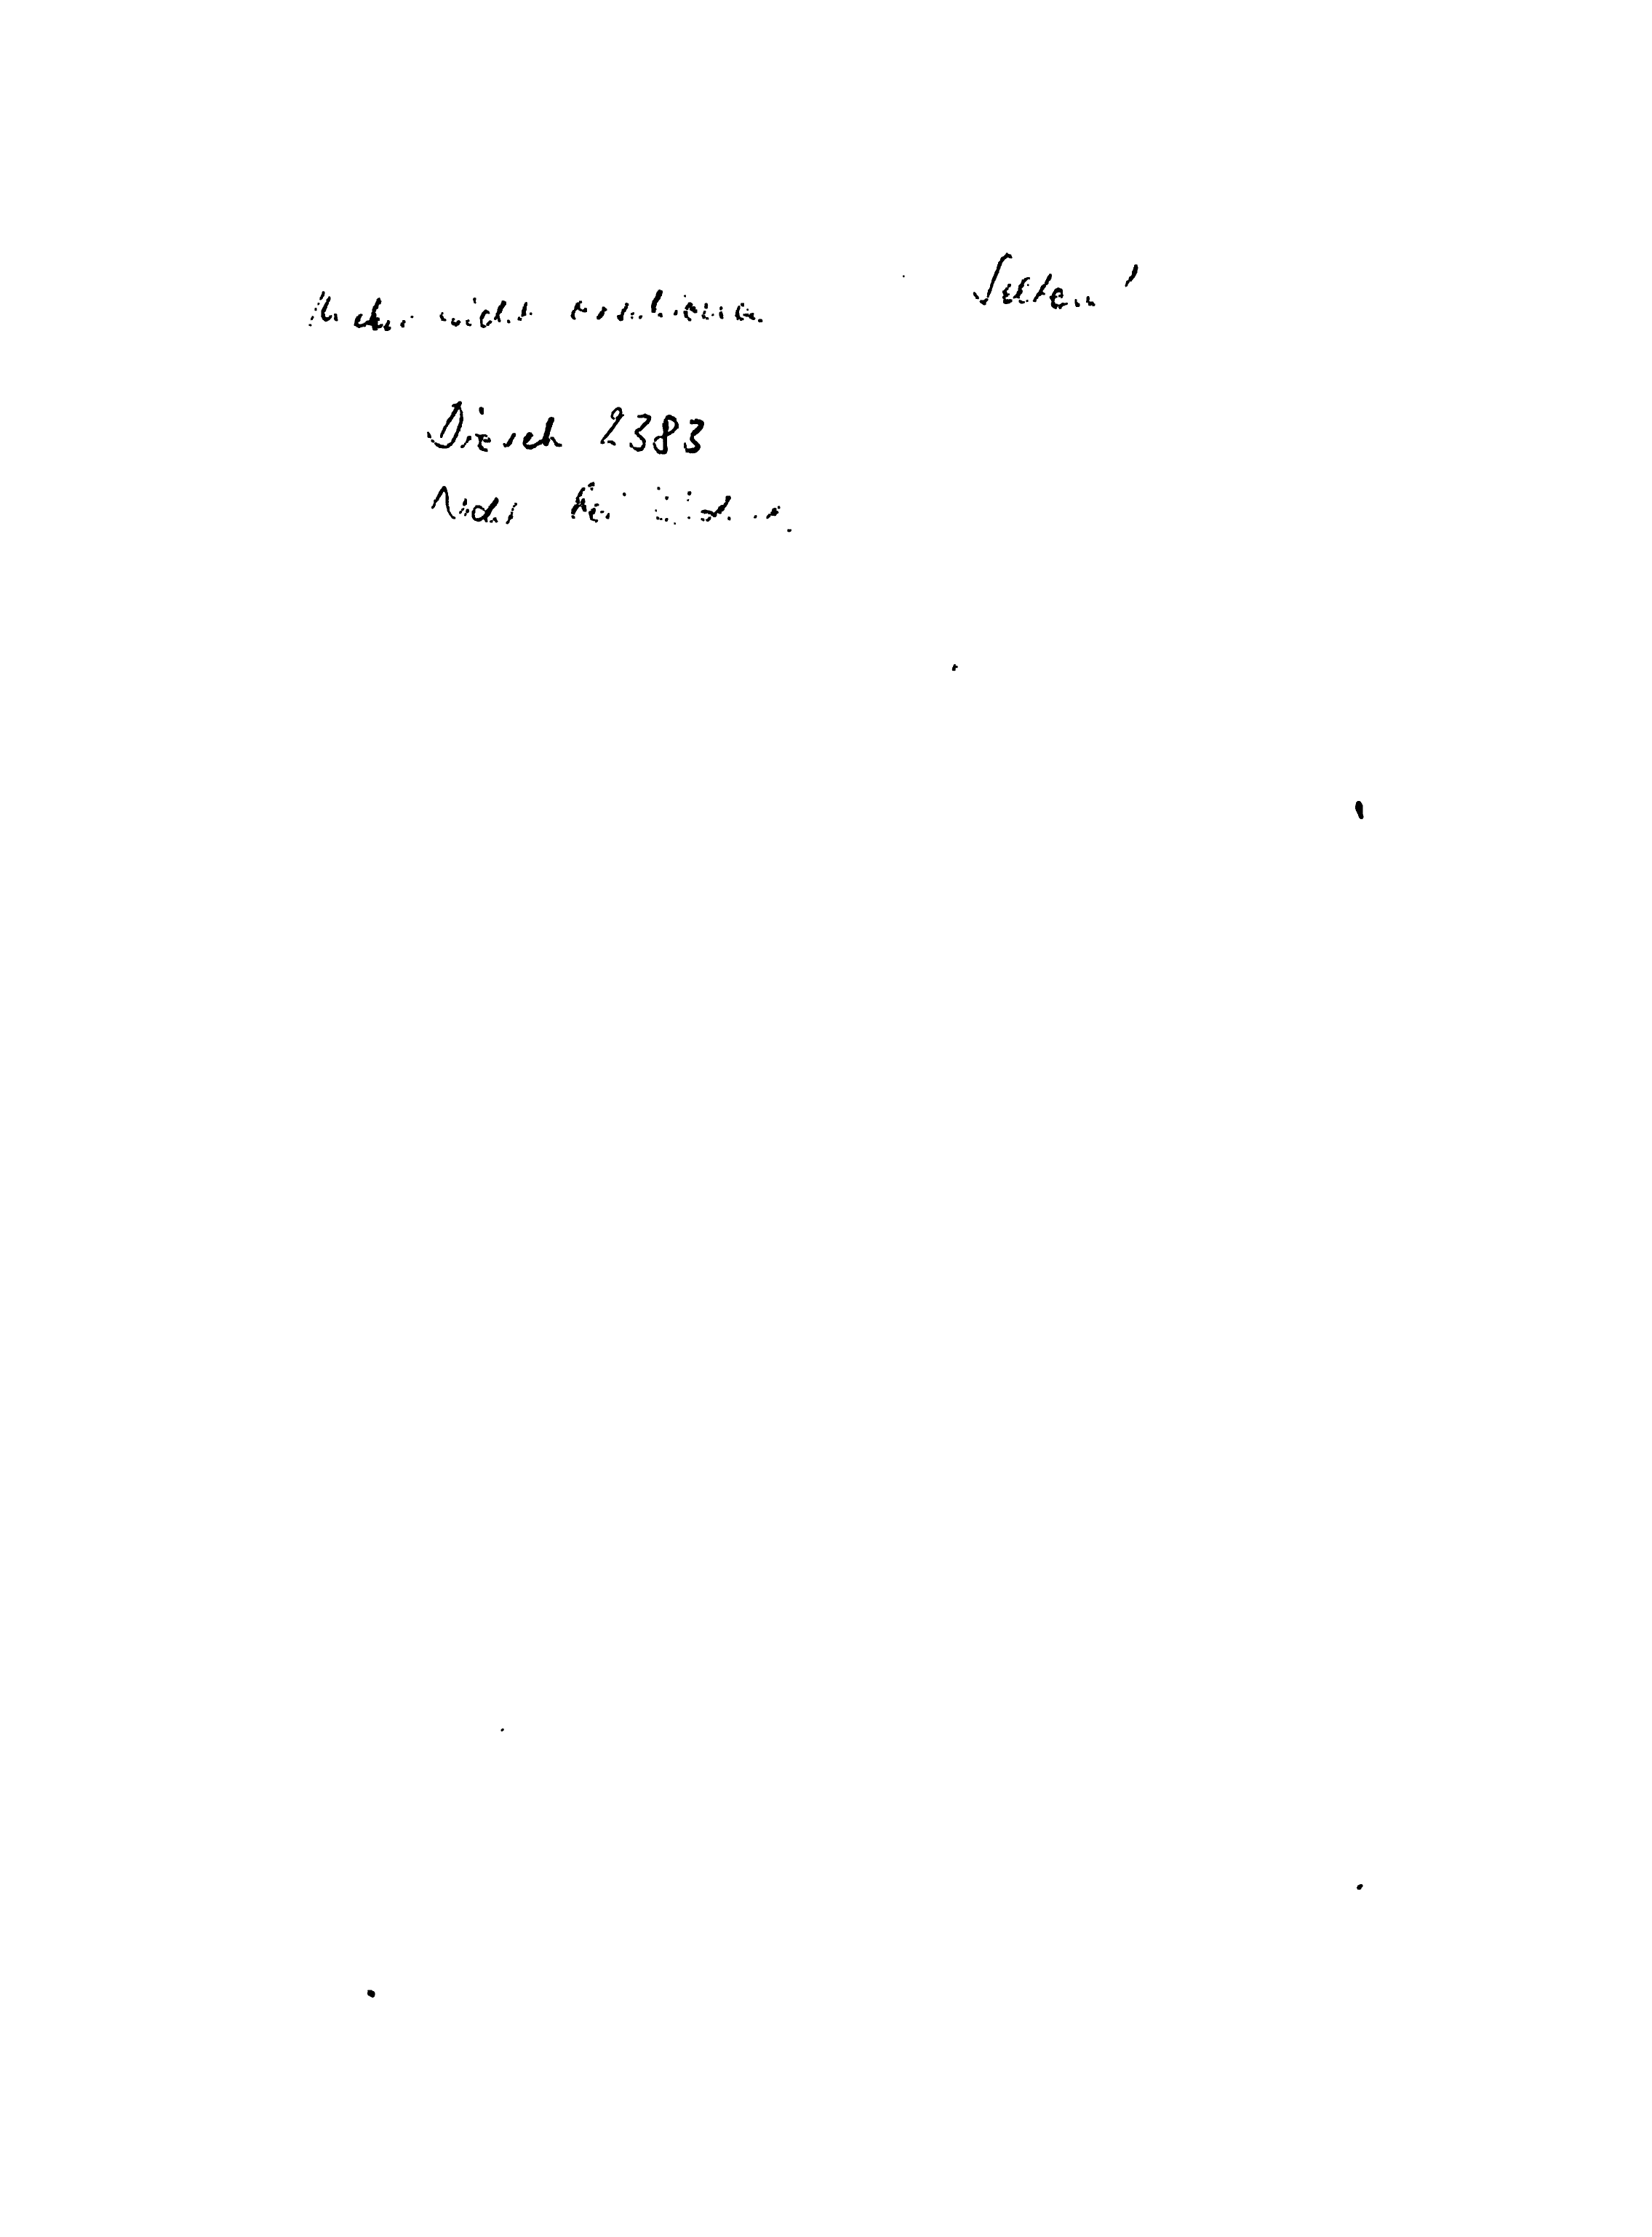 Mehr nicht erschienen Selten!
Diesch 2383
Nicht bei